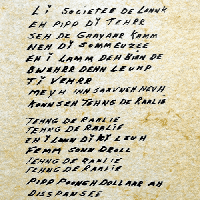 LI SOCIETEE DE LANNK
EH PIPP DI TEHRR
SEH DE GAAYAAR KAMM
NEH DI SOMMEUZEE
EN I LAMM DEH BIAN DE
BWEHRR DENN LEUHP
TI VEHRR
MEYH INN SAAV NEH MEYH
KONNSEH TEHNG DE RAALIE

TEHNG DE RAALIE
TEHNG DE RAALIE
EN I LONN DI KI LEUH
FEMM SONN DROLL
TEHNG DE RAALIE
TEHNG DE RAALIE
PIPP POONGH DOLLAAR AH
DISSPANSEE